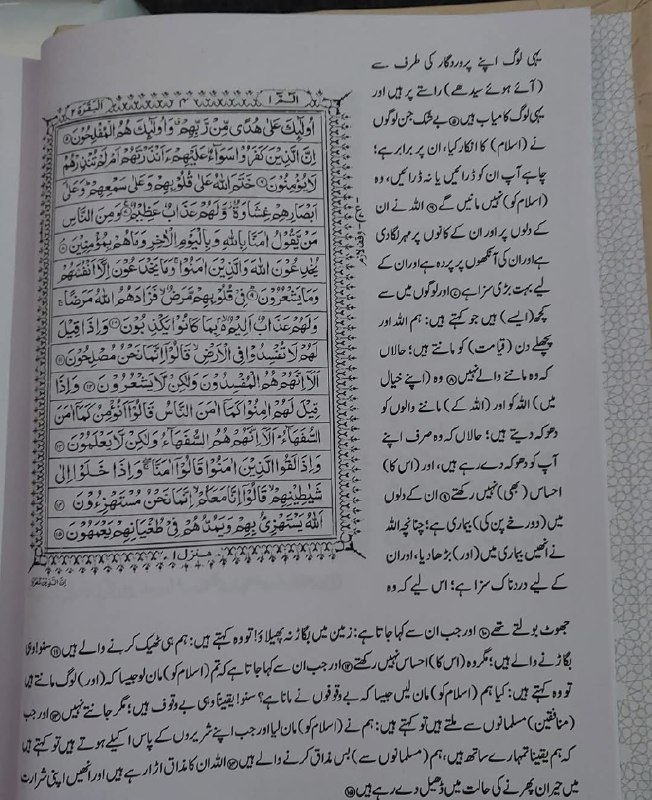 الٓمّٓ ١
٣
البقرة ٢
اُولٰٓئِكَ عَلٰى هُدًى مِّنْ رَّبِّهِمْ ۗ وَاُولٰٓئِكَ هُمُ الْمُفْلِحُوْنَ ۝٥
اِنَّ الَّذِيْنَ كَفَرُوْا سَوَآءٌ عَلَيْهِمْ ءَاَنْذَرْتَهُمْ اَمْ لَمْ تُنْذِرْهُمْ
لَا يُؤْمِنُوْنَ ۝٦ خَتَمَ اللّٰهُ عَلٰى قُلُوْبِهِمْ وَعَلٰى سَمْعِهِمْ ؕ وَعَلٰٓى
اَبْصَارِهِمْ غِشَاوَةٌ ؗ وَّلَهُمْ عَذَابٌ عَظِيْمٌ ۝٧ وَمِنَ النَّاسِ
مَنْ يَّقُوْلُ اٰمَنَّا بِاللّٰهِ وَبِالْيَوْمِ الْاٰخِرِ وَمَا هُمْ بِمُؤْمِنِيْنَ ۝٨
يُخٰدِعُوْنَ اللّٰهَ وَالَّذِيْنَ اٰمَنُوْا ۚ وَمَا يَخْدَعُوْنَ اِلَّاۤ اَنْفُسَهُمْ
وَمَا يَشْعُرُوْنَ ۝٩ فِيْ قُلُوْبِهِمْ مَّرَضٌ ۙ فَزَادَهُمُ اللّٰهُ مَرَضًا ۚ
وَلَهُمْ عَذَابٌ اَلِيْمٌ ۢ ۙ بِمَا كَانُوْا يَكْذِبُوْنَ ۝١٠ وَاِذَا قِيْلَ
لَهُمْ لَا تُفْسِدُوْا فِي الْاَرْضِ ۙ قَالُوْۤا اِنَّمَا نَحْنُ مُصْلِحُوْنَ ۝١١
اَلَاۤ اِنَّهُمْ هُمُ الْمُفْسِدُوْنَ وَلٰكِنْ لَّا يَشْعُرُوْنَ ۝١٢ وَاِذَا
قِيْلَ لَهُمْ اٰمِنُوْا كَمَاۤ اٰمَنَ النَّاسُ قَالُوْۤا اَنُؤْمِنُ كَمَاۤ اٰمَنَ
السُّفَهَآءُ ؕ اَلَاۤ اِنَّهُمْ هُمُ السُّفَهَآءُ وَلٰكِنْ لَّا يَعْلَمُوْنَ ۝١٣
وَاِذَا لَقُوا الَّذِيْنَ اٰمَنُوْا قَالُوْۤا اٰمَنَّا ۖۚ وَاِذَا خَلَوْا اِلٰى
شَيٰطِيْنِهِمْ ۙ قَالُوْۤا اِنَّا مَعَكُمْ ۙ اِنَّمَا نَحْنُ مُسْتَهْزِءُوْنَ ۝١٤
اَللّٰهُ يَسْتَهْزِئُ بِهِمْ وَيَمُدُّهُمْ فِيْ طُغْيَانِهِمْ يَعْمَهُوْنَ ۝١٥
منزل ١
یہی لوگ اپنے پروردگار کی طرف سے
(آئے ہوئے سیدھے) راستے پر ہیں اور
یہی لوگ کامیاب ہیں ۝٥ بے شک جن لوگوں
نے (اسلام) کا انکار کیا، ان پر برابر ہے؛
چاہے آپ ان کو ڈرائیں یا نہ ڈرائیں، وہ
(اسلام کو) نہیں مانیں گے ۝٦ اللہ نے ان
کے دلوں پر اور ان کے کانوں پر مہر لگادی
ہے اور ان کی آنکھوں پر پردہ ہے اور ان کے
لیے بہت بڑی سزا ہے ۝٧ اور لوگوں میں سے
کچھ (ایسے) ہیں جو کہتے ہیں: ہم اللہ اور
پچھلے دن (قیامت) کو مانتے ہیں؛ حالاں
کہ وہ ماننے والے نہیں ۝٨ وہ (اپنے خیال
میں) اللہ کو اور (اللہ کے) ماننے والوں کو
دھوکہ دیتے ہیں؛ حالاں کہ وہ صرف اپنے
آپ کو دھوکہ دے رہے ہیں، اور (اس کا)
احساس (بھی) نہیں رکھتے ۝٩ ان کے دلوں
میں (دورخے پن کی) بیماری ہے؛ چنانچہ اللہ
نے انھیں بیماری میں (اور) بڑھا دیا، اور ان
کے لیے دردناک سزا ہے؛ اس لیے کہ وہ
جھوٹ بولتے تھے ۝١٠ اور جب ان سے کہا جاتا ہے: زمین میں بگاڑ نہ پھیلاؤ! تو وہ کہتے ہیں: ہم ہی ٹھیک کرنے والے ہیں ۝١١ سنو! وہی
بگاڑنے والے ہیں؛ مگر وہ (اس کا) احساس نہیں رکھتے ۝١٢ اور جب ان سے کہا جاتا ہے کہ تم (اسلام کو) مان لو جیسا کہ (اور) لوگ مانتے ہیں
تو وہ کہتے ہیں: کیا ہم (اسلام کو) مان لیں جیسا کہ بے وقوفوں نے مانا ہے؟ سنو! یقیناً وہی بے وقوف ہیں؛ مگر جانتے نہیں ۝١٣ اور جب
(منافقین) مسلمانوں سے ملتے ہیں تو کہتے ہیں: ہم نے (اسلام کو) مان لیا اور جب اپنے شریروں کے پاس اکیلے ہوتے ہیں تو کہتے ہیں
کہ ہم یقیناً تمہارے ساتھ ہیں، ہم (مسلمانوں سے) بس مذاق کرنے والے ہیں ۝١٤ اللہ ان کا مذاق اڑا رہے ہیں اور انھیں اپنی شرارت
میں حیران پھرنے کی حالت میں ڈھیل دے رہے ہیں ۝١٥